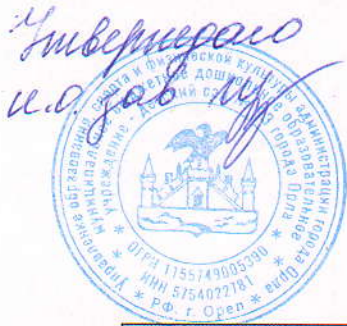 Утверждаю
и.о. зав
Управление образования, спорта и физической культуры администрации города Орла
муниципальное бюджетное дошкольное образовательное
учреждение - Детский сад города Орла
ОГРН 1155749005390
ИНН 5754022781
* РФ. г. Орел *